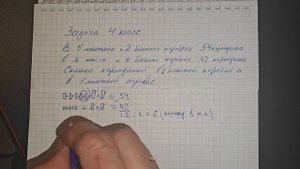 Задача 4 класс
В 5 маленьких и 2 больших коробках 54 карандаша
в 3 мал-х и 2 больших коробках 42 карандаша
Сколько карандашей в 1 большой коробке и
в 1 маленькой коробке
= 54
= 42
12 : 2 = 6 (